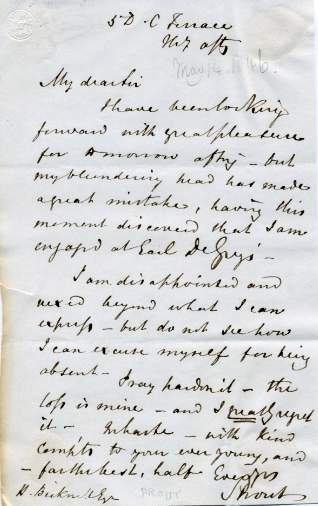 5 D. C Terrace
aftn
May 14 1846.
My dear Sir
I have been looking
forward with great pleasure
for tomorrow aftn - but
my blundering head has made
a great mistake, having this
moment discovered that I am
engaged at Earl De Grey's -
I am disappointed and
vexed beyond what I can
express - but do not see how
I can excuse myself for being
absent -
Pray pardon it - the
loss is mine - and I really regret
it - In haste - with kind
compts to your ever young, and
- farther best, half Ever yrs
H. Bicknell Esqr
PROUT
S Prout